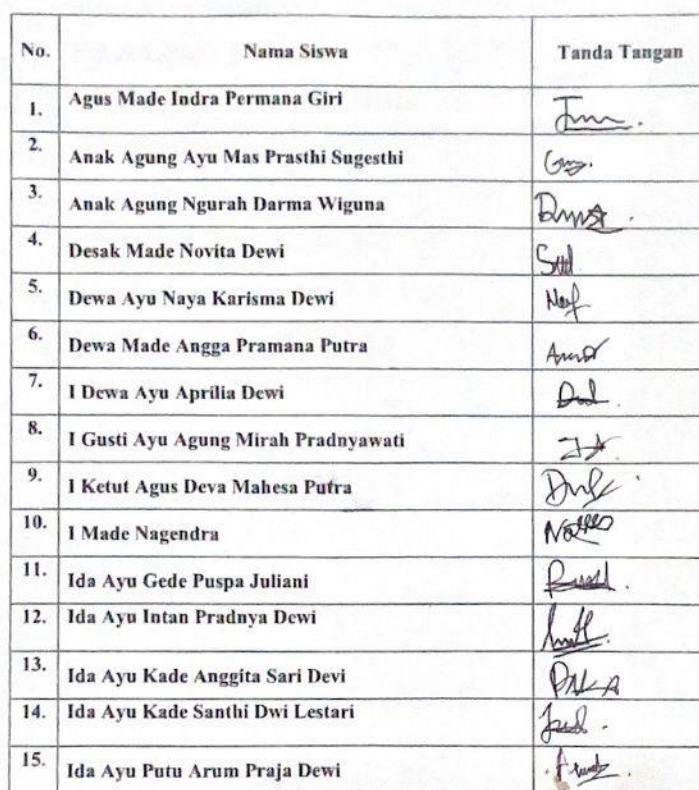 No. Nama Siswa Tanda Tangan
1. Agus Made Indra Permana Giri
2. Anak Agung Ayu Mas Prasthi Sugesthi
3. Anak Agung Ngurah Darma Wiguna
4. Desak Made Novita Dewi
5. Dewa Ayu Naya Karisma Dewi
6. Dewa Made Angga Pramana Putra
7. I Dewa Ayu Aprilia Dewi
8. I Gusti Ayu Agung Mirah Pradnyawati
9. I Ketut Agus Deva Mahesa Putra
10. I Made Nagendra
11. Ida Ayu Gede Puspa Juliani
12. Ida Ayu Intan Pradnya Dewi
13. Ida Ayu Kade Anggita Sari Devi
14. Ida Ayu Kade Santhi Dwi Lestari
15. Ida Ayu Putu Arum Praja Dewi